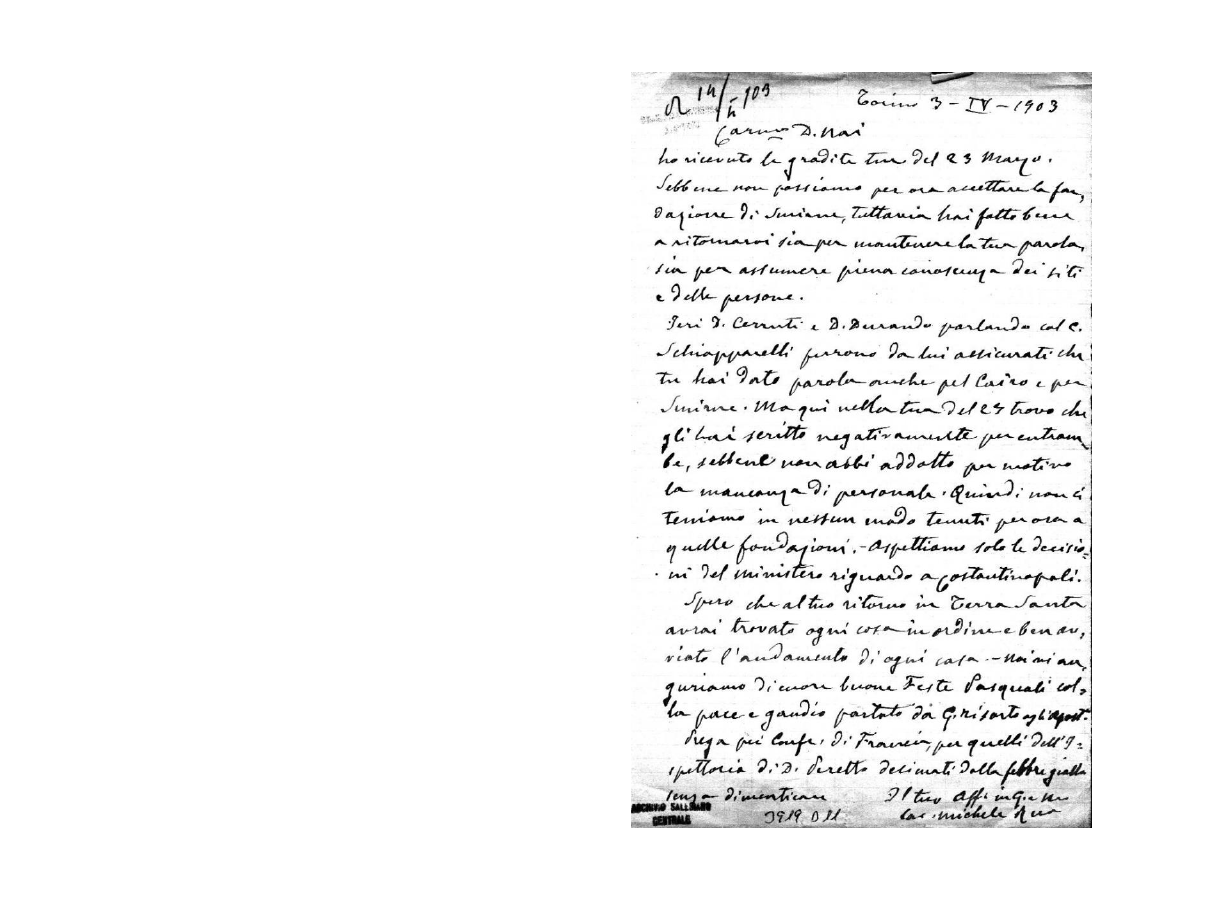 R 14/IV 903
Torino 3 - IV - 1903
Carmo D. Nai
ho ricevuto la gradita tua del 23 Marzo.
Sebbene non possiamo per ora accettare la fon,
dazione di Smirne, tuttavia hai fatto bene
a ritornarvi sia per mantenere la tua parola,
sia per assumere piena conoscenza dei siti
e delle persone.
Ieri D. Cerruti e D. Durando parlando col C.
Schiapparelli furono da lui assicurati che
tu hai dato parola anche pel Cairo e per
Smirne. Ma qui nella tua del 23 trovo che
gli hai scritto negativamente per entram
be, sebbene non abbi addotto per motivo
la mancanza di personale. Quindi non ci
teniamo in nessun modo tenuti per ora a
quelle fondazioni. - Aspettiamo solo le decisio=
ni del ministero riguardo a Costantinopoli.
Spero che al tuo ritorno in Terra Santa
avrai trovato ogni cosa in ordine e ben av,
viato l'andamento di ogni casa - Noi vi au,
guriamo di cuore buone Feste Pasquali col=
la pace e gaudio portato da G. risorto agli Apost.
Prega pei Confr. di Francia, per quelli dell'I=
spettoria di D. Peretto decimati dalla febbre gialla
senza dimenticare Il tuo Aff in G. e M
Sac. Michele Rua
ARCHIVIO SALESIANO
CENTRALE
3919 D 11